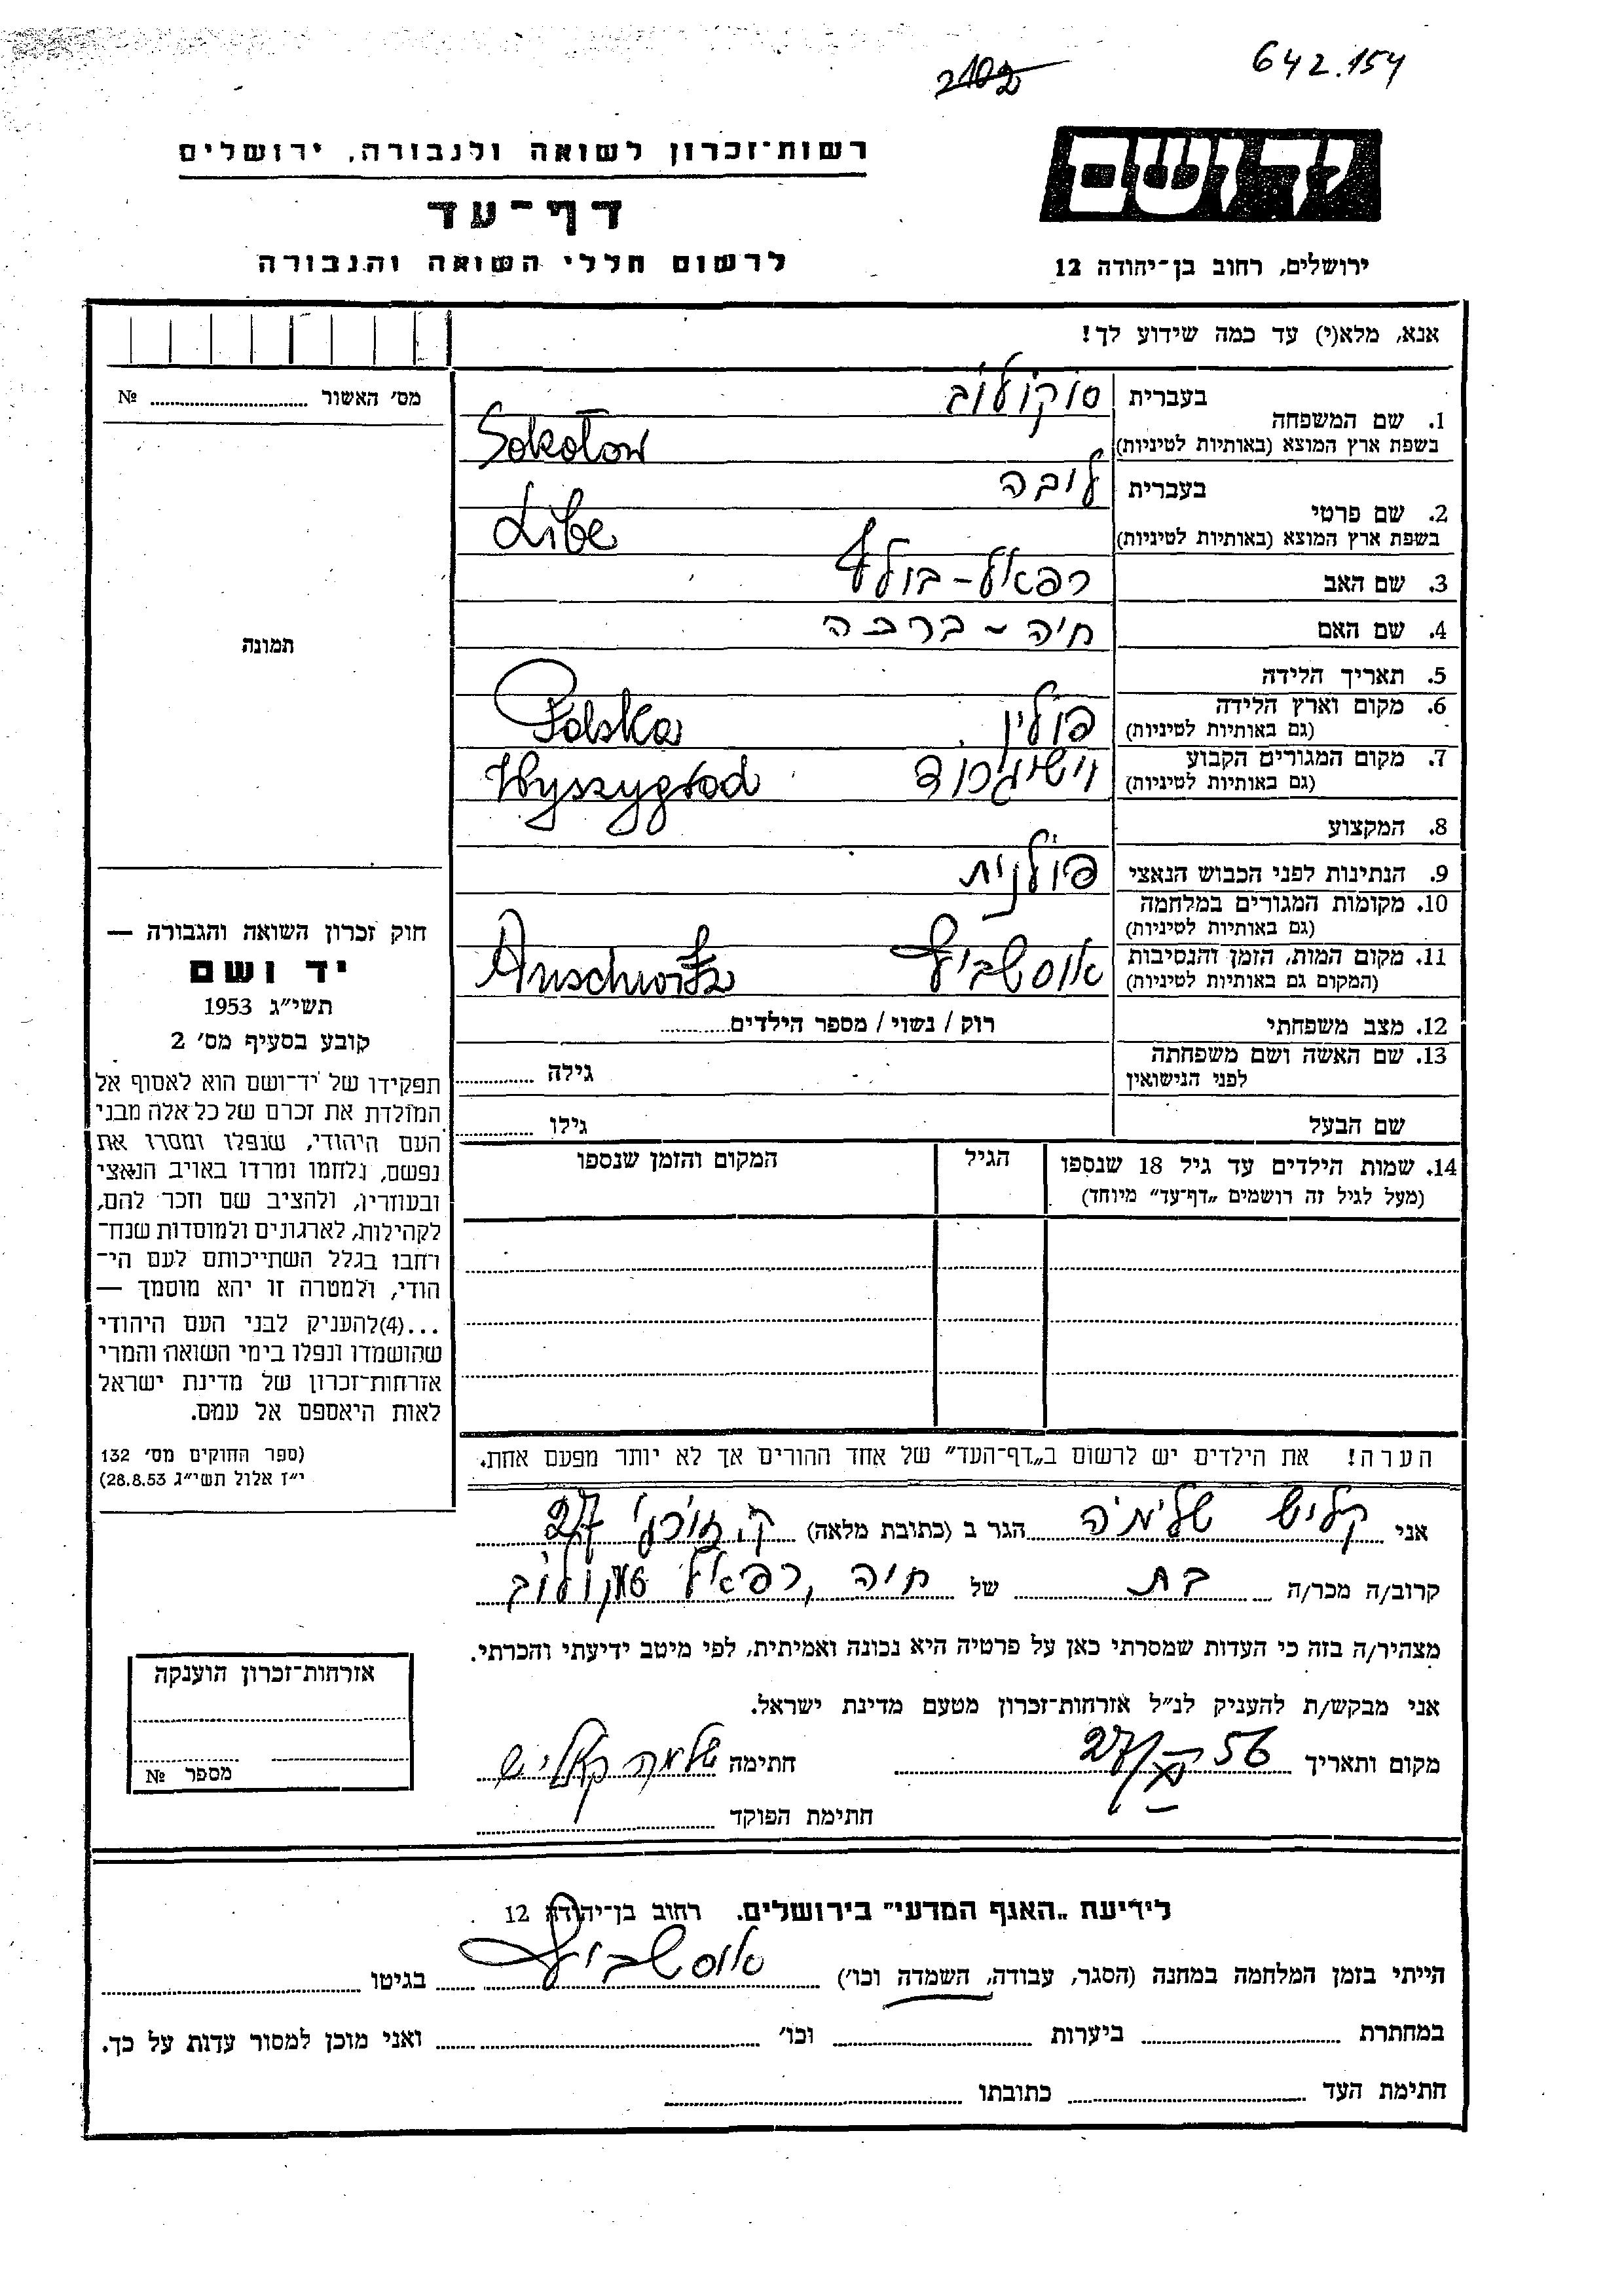 642.154
2102
ידושם
רשות-זכרון לשואה ולגבורה, ירושלים
דף-עד
לרשום חללי השואה והגבורה
ירושלים, רחוב בן-יהודה 12
אנא, מלא(י) עד כמה שידוע לך!
מס׳ האשור ........ №
תמונה
1. שם המשפחה
בעברית סוקולוב
בשפת ארץ המוצא (באותיות לטיניות) Sokołow
2. שם פרטי
בעברית ליבה
בשפת ארץ המוצא (באותיות לטיניות) Libe
3. שם האב רפאל-
4. שם האם חיה - ברכה
5. תאריך הלידה
6. מקום וארץ הלידה
(גם באותיות לטיניות) פולין Polska
7. מקום המגורים הקבוע
(גם באותיות לטיניות) וישיגרוד Wyszygrod
8. המקצוע
9. הנתינות לפני הכבוש הנאצי פולנית
10. מקומות המגורים במלחמה
(גם באותיות לטיניות)
11. מקום המות, הזמן והנסיבות
(המקום גם באותיות לטיניות) אושביץ Auschwitz
12. מצב משפחתי רוק / נשוי / מספר הילדים........
13. שם האשה ושם משפחתה
לפני הנישואין גילה ........
שם הבעל גילו ........
14. שמות הילדים עד גיל 18 שנספו
(מעל לגיל זה רושמים „דף-עד״ מיוחד)
הגיל
המקום והזמן שנספו
חוק זכרון השואה והגבורה —
יד ושם
תשי״ג 1953
קובע בסעיף מס׳ 2
תפקידו של יד-ושם הוא לאסוף אל
המולדת את זכרם של כל אלה מבני
העם היהודי, שנפלו ומסרו את
נפשם, נלחמו ומרדו באויב הנאצי
ובעוזריו, ולהציב שם וזכר להם,
לקהילות, לארגונים ולמוסדות שנח-
רחבו בגלל השתייכותם לעם הי-
הודי, ולמטרה זו יהא מוסמך —
...(4) להעניק לבני העם היהודי
שהושמדו ונפלו בימי השואה והמרי
אזרחות-זכרון של מדינת ישראל
לאות היאספם אל עמם.
(ספר החוקים מס׳ 132
י״ז אלול תשי״ג 28.8.53)
הערה! את הילדים יש לרשום ב„דף-העד״ של אחד ההורים אך לא יותר מפעם אחת.
אני קליש שלימה הגר ב (כתובת מלאה) ק. 27
קרוב/ה מכר/ה בת של חיה, רפאל סוקולוב
מצהיר/ה בזה כי העדות שמסרתי כאן על פרטיה היא נכונה ואמיתית, לפי מיטב ידיעתי והכרתי.
אני מבקש/ת להעניק לנ״ל אזרחות-זכרון מטעם מדינת ישראל.
מקום ותאריך 56 27/ חתימה שלמה קליש
חתימת הפוקד
אזרחות-זכרון הוענקה
מספר №
לידיעת „האגף המדעי״ בירושלים. רחוב בן-יהודה 12
הייתי בזמן המלחמה במחנה (הסגר, עבודה, השמדה וכו׳) אושביץ בגיטו
במחתרת ........ ביערות ........ וכו׳ ........ ואני מוכן למסור עדות על כך.
חתימת העד ........ כתובתו ........